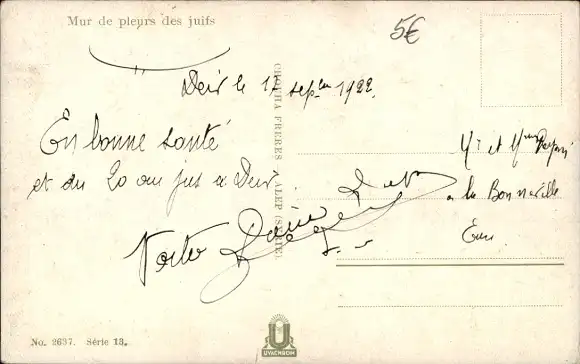 Mur de pleurs des juifs
5€
Deir le 17 sepbre 1922.
En bonne santé
et du 20 au jus a Deir
Votre
Mr et Mme
a la Bonneville
Eure
CHOUHA FRERES ALEP (SYRIE)
No. 2637. Série 13.
UVACHROM